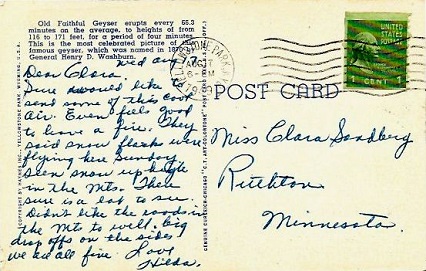 Old Faithful Geyser erupts every 66.3
minutes on the average, to heights of from
116 to 171 feet, for a period of four minutes.
This is the most celebrated picture of the
famous geyser, which was named in 1870 by
General Henry D. Washburn.
Wed Aug 7,
Dear Clara.
Sure would like to
send some of this cool
air. Even feels good
to have a fire. They
said snow flakes were
flying here Sunday.
Seen snow up high
in the Mts. There
sure is a lot to see.
Didn't like the roads in
the Mts to well. big
drop offs on the sides
we are all fine. Love
Hilda.
COPYRIGHT BY HAYNES INC., YELLOWSTONE PARK, WYOMING, U.S.A.
GENUINE CURTEICH-CHICAGO "C.T. ART-COLORTONE" POST CARD
YELLOWSTONE PARK
AUG 7
6-PM
POST CARD
1 CENT 1
Miss Clara Sandberg
Ruthton
Minnesota.